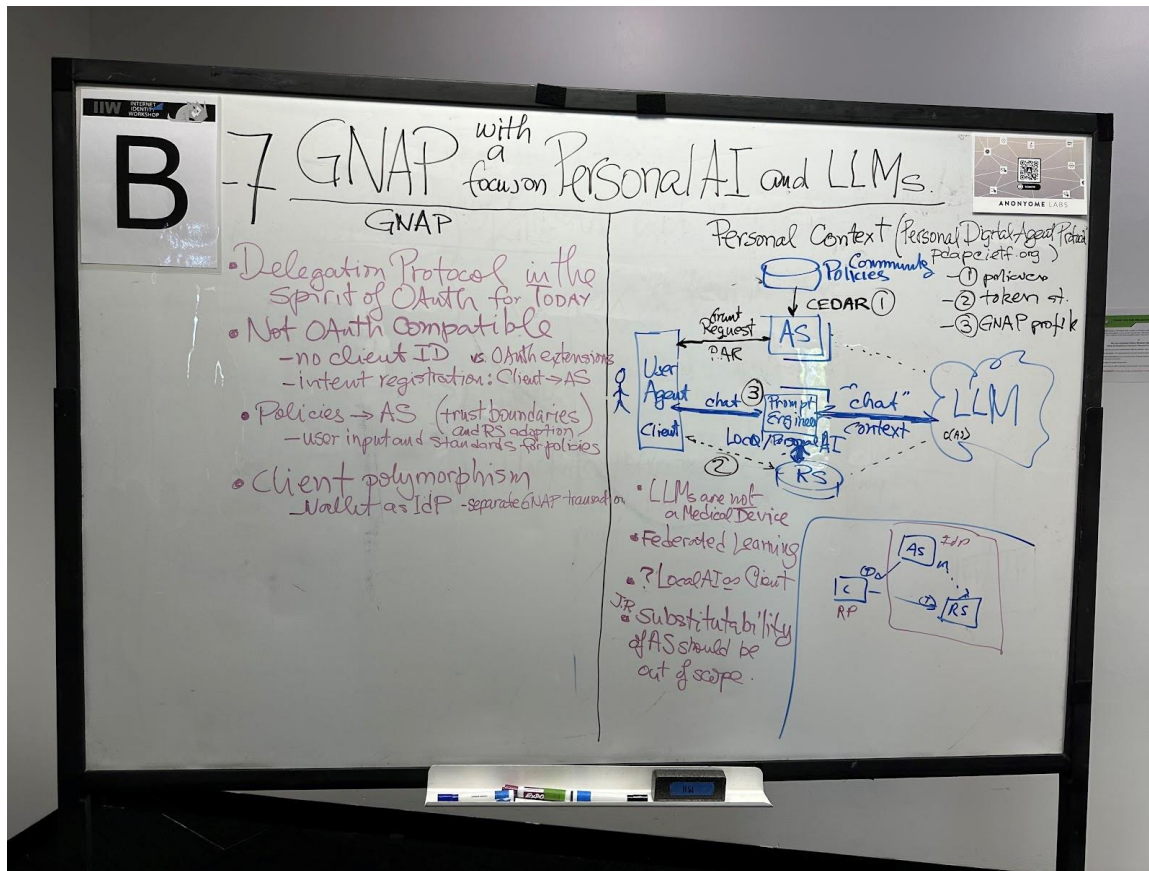 IIW INTERNET IDENTITY WORKSHOP
B
-7 GNAP with a focus on Personal AI and LLMs.
ANONYOME LABS
GNAP
• Delegation Protocol in the
spirit of OAuth for TODAY
• Not OAuth compatible
- no client ID vs. OAuth extensions
- intent registration: Client → AS
• Policies → AS (trust boundaries)
and RS adoption
- user input and standards for policies
• Client polymorphism
- Wallet as IdP - separate GNAP transaction
Personal Context (Personal Digital Agent Protocol
pdapcietf.org)
- ① policies
- ② token st.
- ③ GNAP profile
Community
Policies
CEDAR ①
Grant
Request
PAR
AS
User
Agent
Client
chat ③
Prompt
Engineer
Local/Personal AI
"chat"
context
LLM
②
RS
• LLMs are not
a Medical Device
• Federated Learning
• ? Local AI as Client
J.R.
• Substitutability
of AS should be
out of scope.
IdP
AS
C
RP
RS
EXPO
IIW